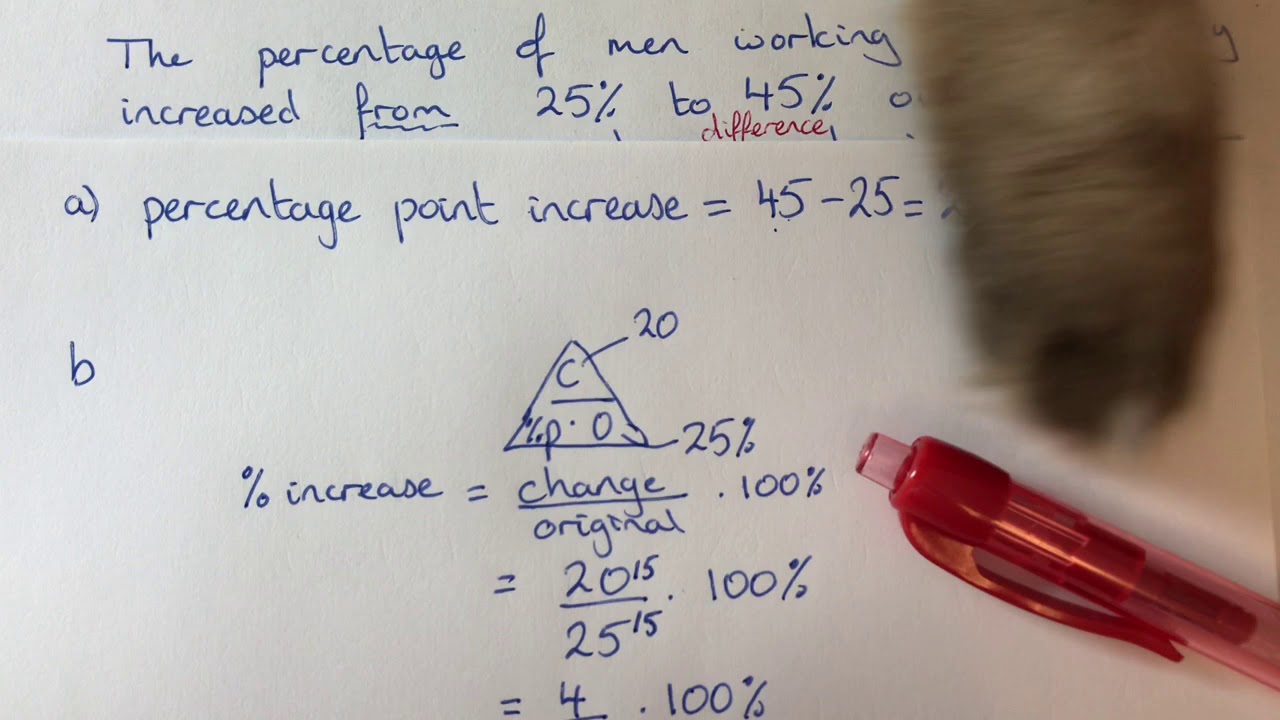 The percentage of men working
increased from 25% to 45%
difference
a) percentage point increase = 45 - 25 =
20
b
C
%p · O
25%
% increase = change / original . 100%
= 20 /5 / 25 /5 . 100%
= 4 . 100%